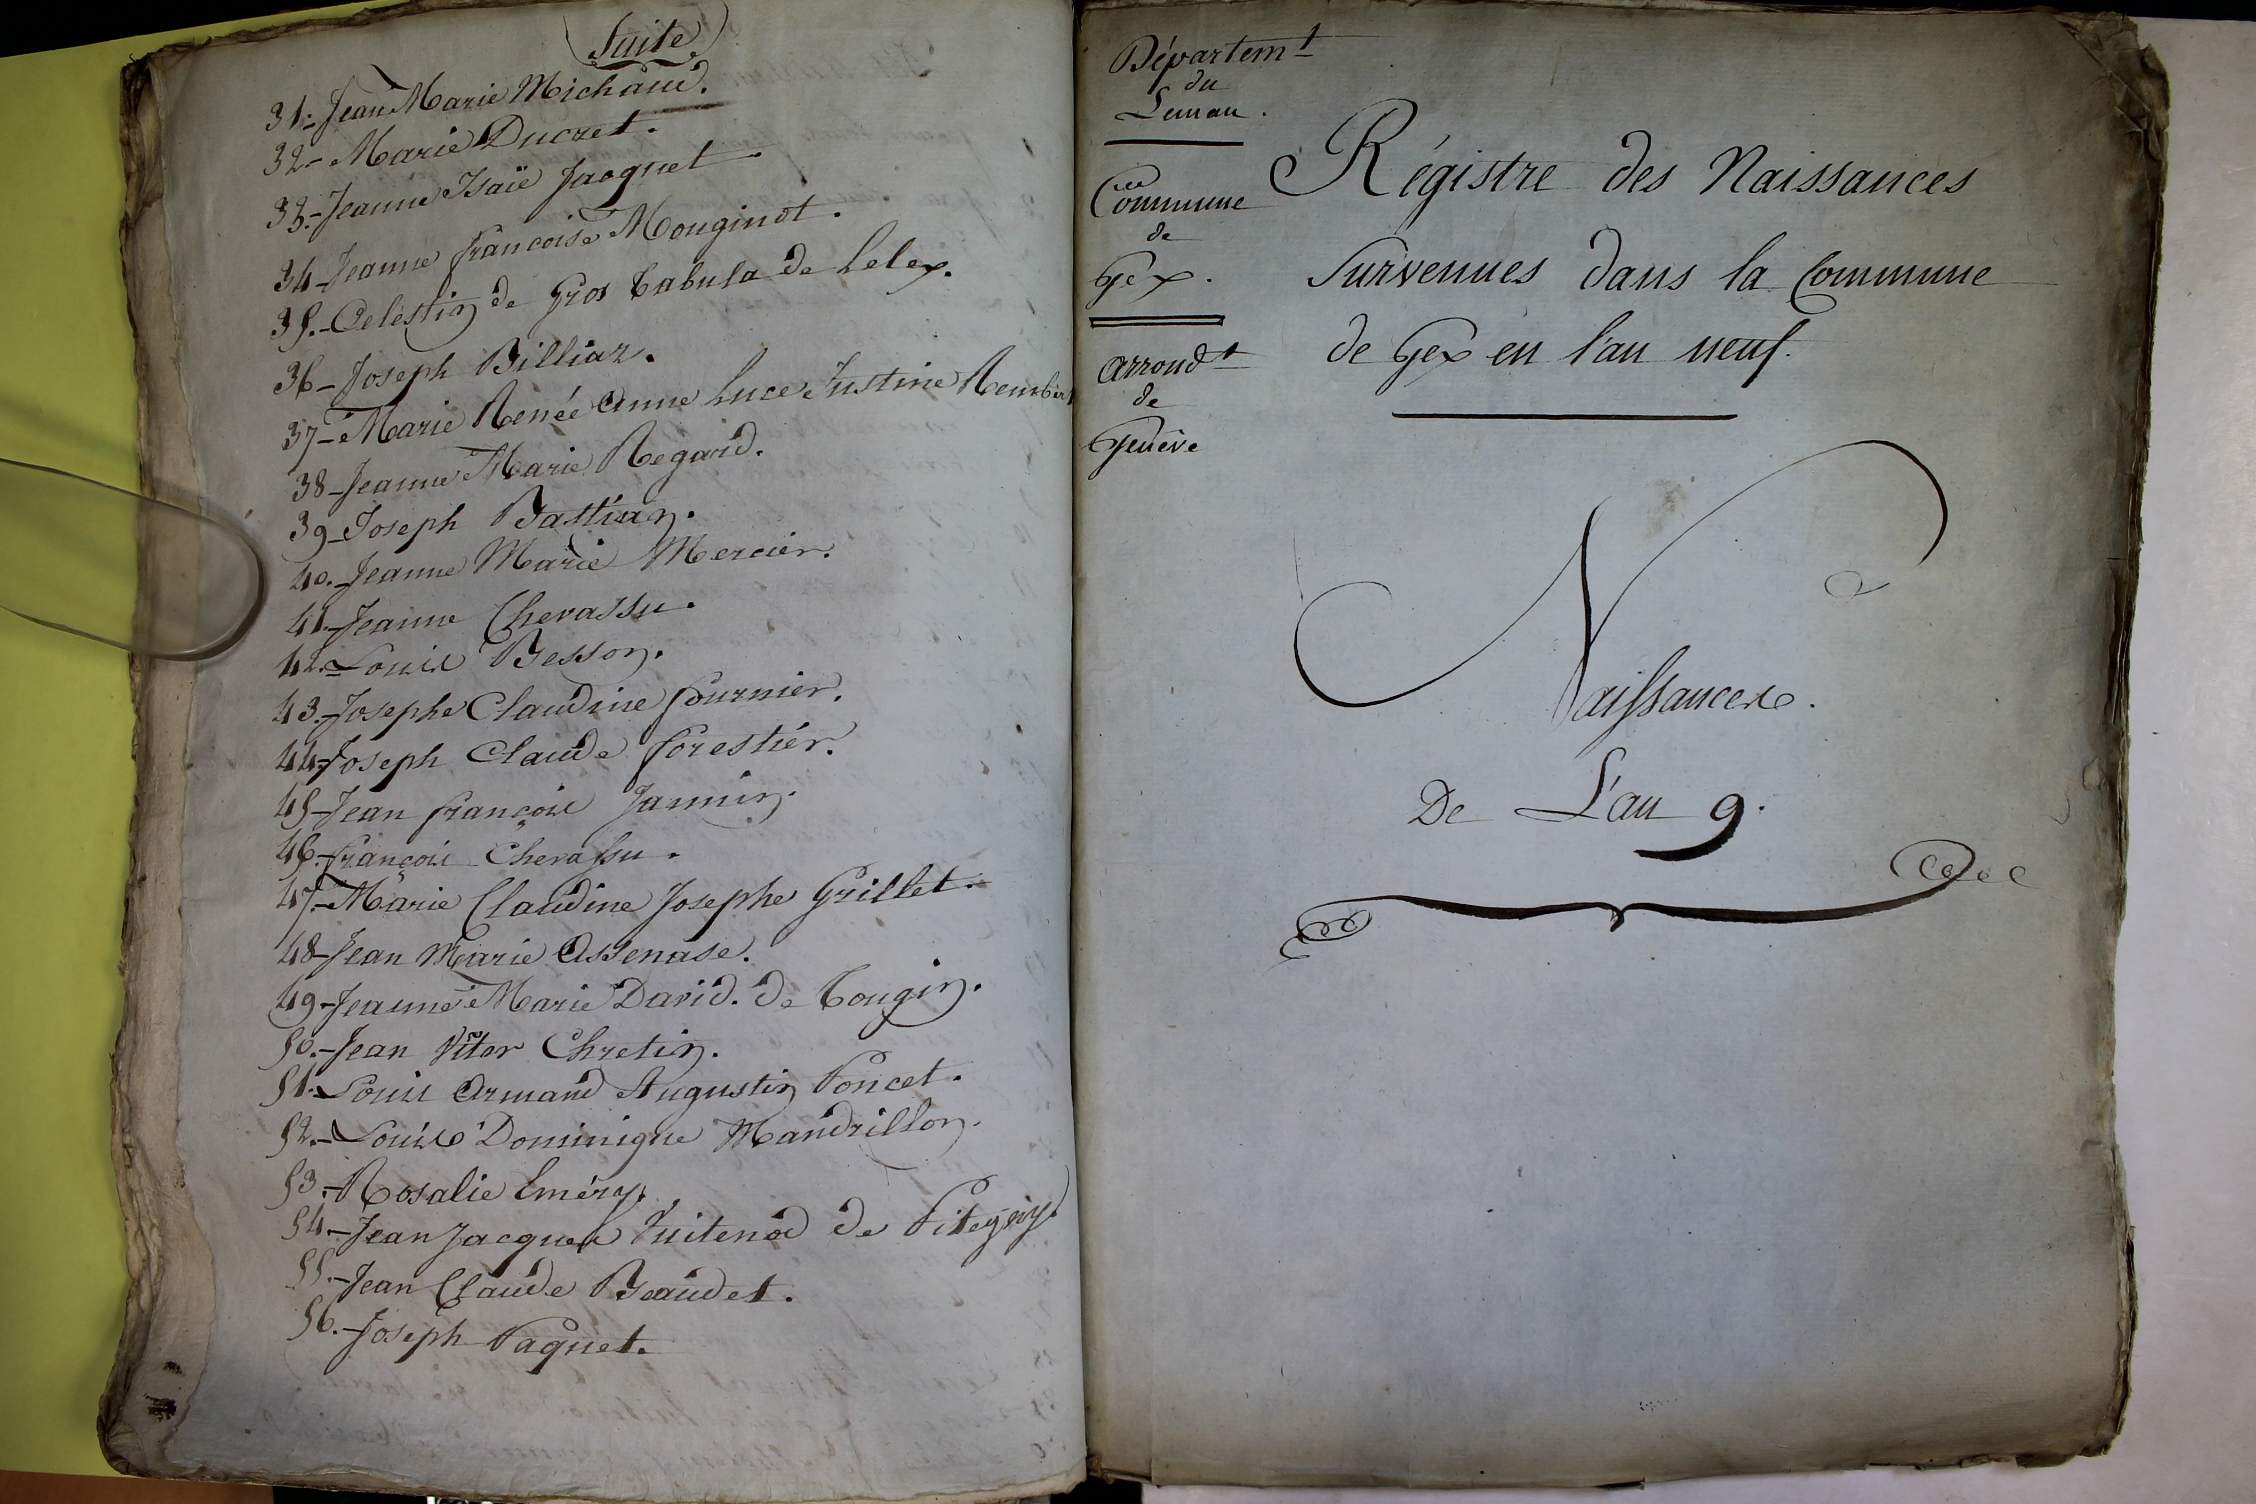 Suite
31.- Jean Marie Michaud.
32.- Marie Ducret.
33.- Jeanne Isaïe Jacquet
34- Jeanne françoise Mouginot.
35.- Celestin de Gros Cabula de Lelex.
36- Joseph Billiaz.
37- Marie Renée Anne Luce Justine
38- Jeanne Marie Regard.
39- Joseph Bastian.
40.- Jeanne Marie Mercier.
41.- Jeanne Chevassu.
42.- Louis Besson.
43.- Josephe Claudine fournier.
44- Joseph Claude forestier.
45- Jean françois Jannin.
46- françois Chevassu.
47.- Marie Claudine Josephe Grillet.
48- Jean Marie Assenase.
49- Jeanne Marie David. de Tougin.
50.- Jean Vitor Chretin.
51.- Louis Armand Augustin Poncet.
52.- Louis Dominique Mandrillon.
53.- Rosalie Eméry.
54.- Jean Jacques Vuitenod de Pitegny.
55.- Jean Claude Beaudet.
56.- Joseph Paquet.
Départemt
du
Leman.
Commune
de
Gex.
Arrondt
de
Genève
Régistre des Naissances
Survenues dans la Commune
de Gex en l'an neuf.
Naissances.
De L'an 9.